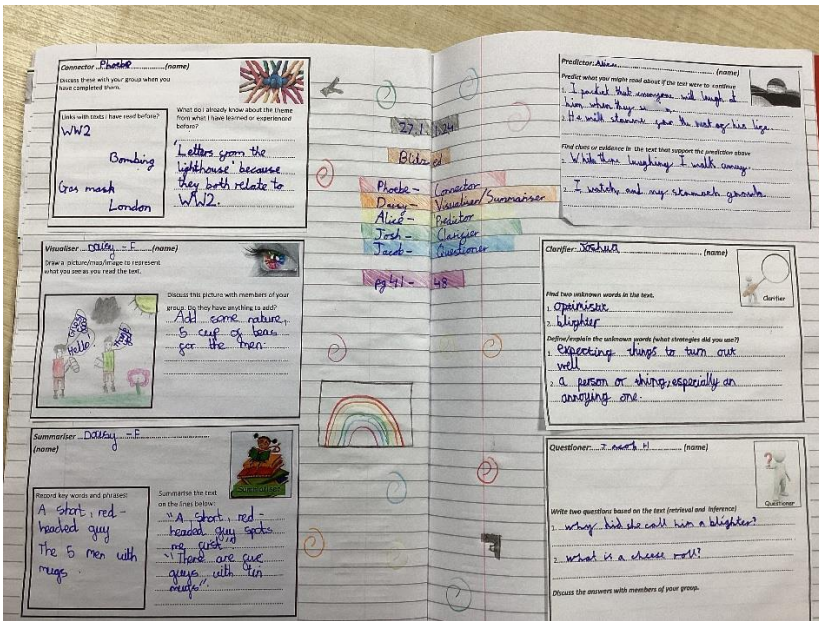 Connector Phoebe (name)
Discuss these with your group when you
have completed them.
Links with texts I have read before?
WW2
Bombing
Gas mask
London
What do I already know about the theme
from what I have learned or experienced
before?
'Letters from the
lighthouse' because
they both relate to
WW2.
Visualiser Daisy - F (name)
Draw a picture/map/image to represent
what you see as you read the text.
Hello!
Discuss this picture with members of your
group. Do they have anything to add?
Add some nature,
5 cup of teas
for the men.
Summariser Daisy - F
(name)
Summariser
Record key words and phrases:
A short, red-
headed guy
The 5 men with
mugs
Summarise the text
on the lines below:
"A short, red-
headed guy spots
me first"
"There are five
guys with tin
mugs".
Phoebe - Connector
Daisy - Visualiser/Summariser
Alice - Predictor
Josh - Clarifier
Jacob - Questioner
pg 41 - 48
Predictor: Alice (name)
Predict what you might read about if the text were to continue
1. I that everyone will laugh at
him when they
2. He will for the rest of his life.
Find clues or evidence in the text that support the prediction above
1. While laughing I walk away.
2. I watch, and my stomach growls.
Clarifier: Joshua (name)
Clarifier
Find two unknown words in the text.
1. optimistic
2. blighter
Define/explain the unknown words (what strategies did you use?)
1. expecting things to turn out
well
2. a person or thing, especially an
annoying one.
Questioner: H (name)
Questioner
Write two questions based on the text (retrieval and inference)
1. why did she call him a blighter?
2. what is a cheese roll?
Discuss the answers with members of your group.